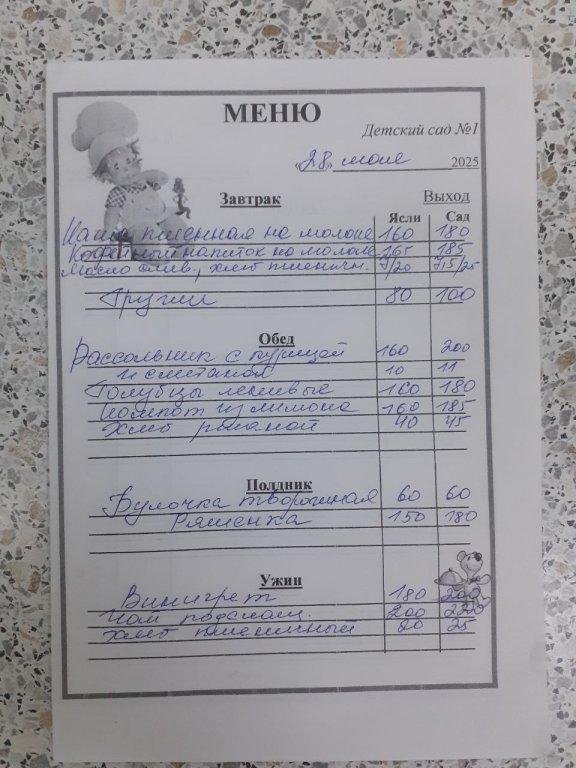 МЕНЮ
Детский сад №1
«28» мая 2025
Завтрак Выход
Ясли Сад
Каша пшенная на молоке 160 180
Кофейный напиток на молоке 165 185
Масло слив., хлеб пшеничн. 7/20 7,5/25
Груши 80 100
Обед
Рассольник с курицей 160 200
и сметаной 10 11
Голубцы ленивые 160 180
Компот из лимона 160 185
Хлеб ржаной 40 45
Полдник
Булочка творожная 60 60
Ряженка 150 180
Ужин
Винигрет 180 200
Чай подслащ. 200 220
Хлеб пшеничный 20 25